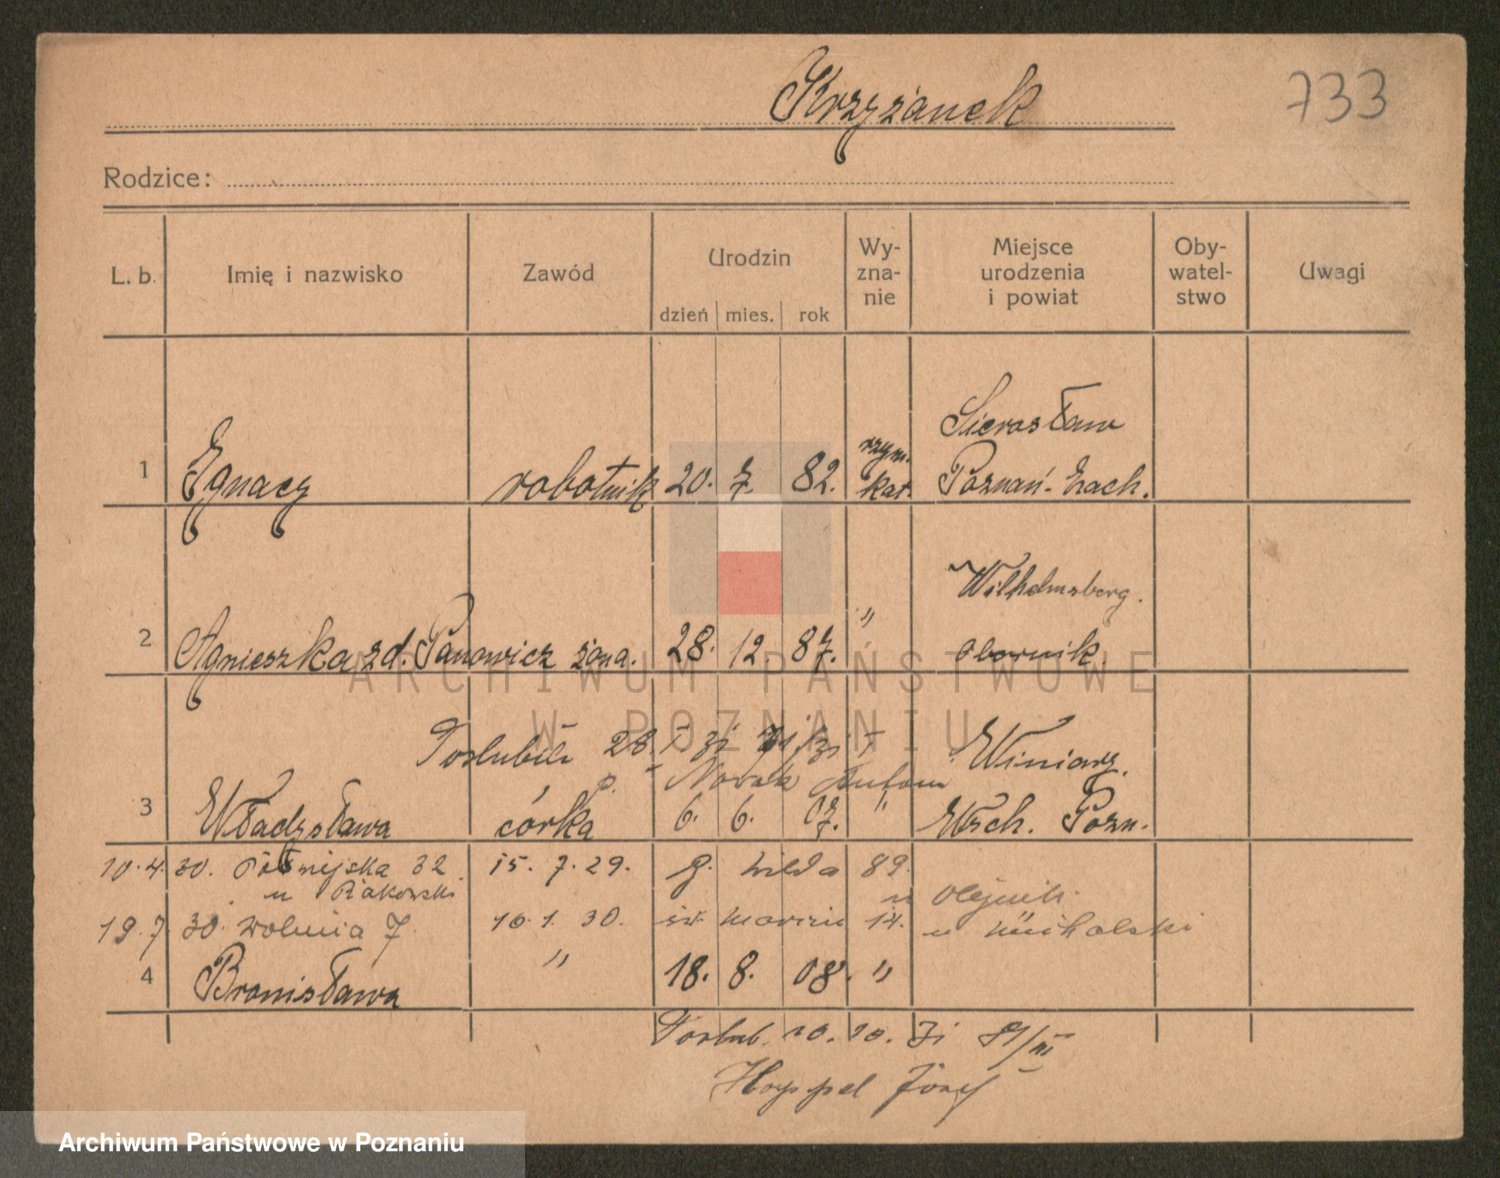 Krzyżanek
733
Rodzice:
L. b. Imię i nazwisko Zawód Urodzin dzień mies. rok Wy-zna-nie Miejsce urodzenia i powiat Oby-watel-stwo Uwagi
1 Ignacy robotnik 20. 7. 82. rzym. kat. Sierosław Poznań-Zach.
2 Agnieszka zd. Panowicz żona. 28. 12. 87. " Wilhelmsberg. Obornik
Poślubiła 28.
p. Nowak Antoni
3 Władysława córka 6. 6. 07. " Winiary. Wsch. Pozn.
10.4. 30. 32 15. 7. 29. g. Wilda 89.
u Rakowski u Olejnik
19.7 30. Wolnica 7. 16. 1. 30. św. Marcin 14. u Michalski
4 Bronisława " 18. 8. 08. "
Poślub. 10. 10. 31
Józef
ARCHIWUM PAŃSTWOWE
W POZNANIU
Archiwum Państwowe w Poznaniu